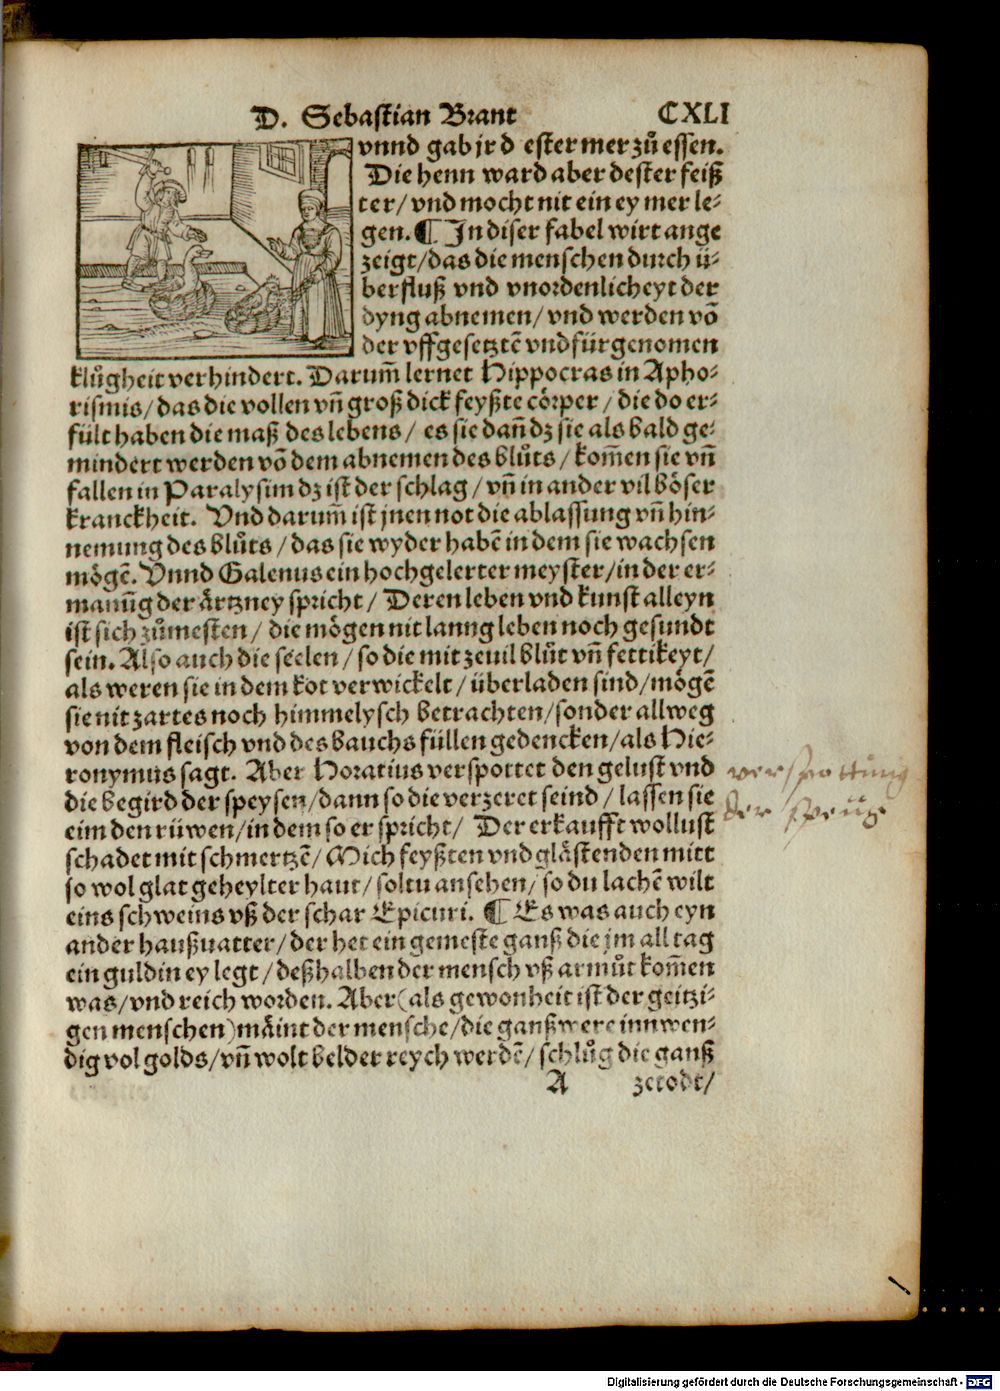 D. Sebastian Brant CXLI
vnnd gab jr d ester mer zů essen.
Die henn ward aber dester feiß
ter/ vnd mocht nit ein ey mer le⸗
gen. ¶ In diser fabel wirt ange
zeigt/ das die menschen durch ü⸗
berfluß vnd vnordenlicheyt der
dyng abnemen/ vnd werden võ
der vffgesetztẽ vnd fürgenomen
klůgheit verhindert. Darum̃ lernet Hippocras in Apho⸗
rismis/ das die vollen vñ groß dick feyßte cörper/ die do er⸗
fült haben die maß des lebens/ es sie dañ dz sie als bald ge⸗
mindert werden võ dem abnemen des blůts/ kom̃en sie vñ
fallen in Paralysim dz ist der schlag/ vñ in ander vil böser
kranckheit. Vnd darum̃ ist jnen not die ablassung vñ hin⸗
nemung des blůts/ das sie wyder habẽ in dem sie wachsen
mögẽ. Vnnd Galenus ein hochgelerter meyster/ in der er⸗
manũg der ärtzney spricht/ Deren leben vnd kunst alleyn
ist sich zůmesten/ die mögen nit lanng leben noch gesundt
sein. Also auch die seelen/ so die mit zeuil blůt vñ fettikeyt/
als weren sie in dem kot verwickelt/ überladen sind/ mögẽ
sie nit zartes noch himmelysch betrachten/ sonder allweg
von dem fleisch vnd des bauchs füllen gedencken/ als Hie⸗
ronymus sagt. Aber Horatius verspottet den gelust vnd
die begird der speysen/ dann so die verzeret seind/ lassen sie
eim den rüwen/ in dem so er spricht/ Der erkaufft wollust
schadet mit schmertzẽ/ Mich feyßten vnd glästenden mitt
so wol glat geheylter haut/ soltu ansehen/ so du lachẽ wilt
eins schweins vß der schar Epicuri. ¶ Es was auch eyn
ander haußuatter/ der het ein gemeste ganß die jm all tag
ein guldin ey legt/ deßhalben der mensch vß armůt kom̃en
was/ vnd reich worden. Aber (als gewonheit ist der geitzi⸗
gen menschen) mäint der mensche/ die ganß were innwen⸗
dig vol golds/ vñ wolt belder reych werdẽ/ schlůg die ganß
A zetodt/
verspottung
der
Digitalisierung gefördert durch die Deutsche Forschungsgemeinschaft - DFG